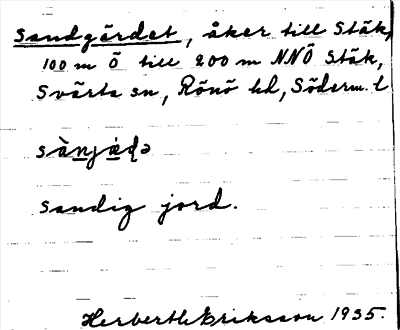 Sandgärdet, åker till Stäk,
100 m Ö till 200 m NNÖ Stäk,
Svärta sn, Rönö hd, Söderm. l
sandig jord.
Herbert Eriksson 1935.